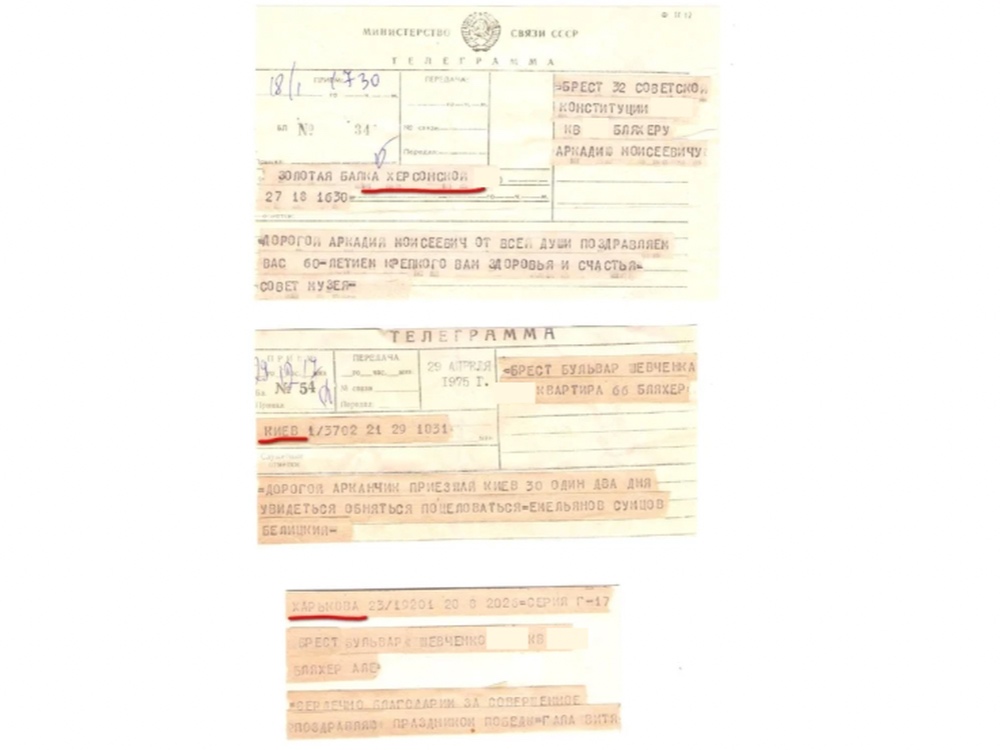 Ф. ТГ 12
МИНИСТЕРСТВО СВЯЗИ СССР
ТЕЛЕГРАММА
18/1 1730
ПЕРЕДАЧА:
БЛ № 34
№ связи
Передал
=БРЕСТ 32 СОВЕТСКОЙ
КОНСТИТУЦИИ
КВ БЛЯХЕРУ
АРКАДИЮ МОИСЕЕВИЧУ
ЗОЛОТАЯ БАЛКА ХЕРСОНСКОЙ
27 18 1630=
=ДОРОГОЙ АРКАДИЙ МОИСЕЕВИЧ ОТ ВСЕЙ ДУШИ ПОЗДРАВЛЯЕМ
ВАС 60-ЛЕТИЕМ КРЕПКОГО ВАМ ЗДОРОВЬЯ И СЧАСТЬЯ=
СОВЕТ МУЗЕЯ=
ТЕЛЕГРАММА
ПРИЕМ
ПЕРЕДАЧА
го час. мин.
№ 54
№ связи
Передал
29 АПРЕЛЯ
1975 Г.
=БРЕСТ БУЛЬВАР ШЕВЧЕНКА
КВАРТИРА 66 БЛЯХЕР
КИЕВ 1/3702 21 29 1031
Служебные
отметки
=ДОРОГОЙ АРКАНЧИК ПРИЕЗЖАЙ КИЕВ 30 ОДИН ДВА ДНЯ
УВИДЕТЬСЯ ОБНЯТЬСЯ ПОЦЕЛОВАТЬСЯ=ЕМЕЛЬЯНОВ СУМЦОВ
БЕЛИЦКИЙ=
ХАРЬКОВА 23/19201 20 8 2026=СЕРИЯ Г-17
БРЕСТ БУЛЬВАР ШЕВЧЕНКО КВ
БЛЯХЕР АЛЕ
=СЕРДЕЧНО БЛАГОДАРИМ ЗА
ПОЗДРАВЛЯЮ ПРАЗДНИКОМ ПОБЕДЫ=ГАЛА ВИТЯ